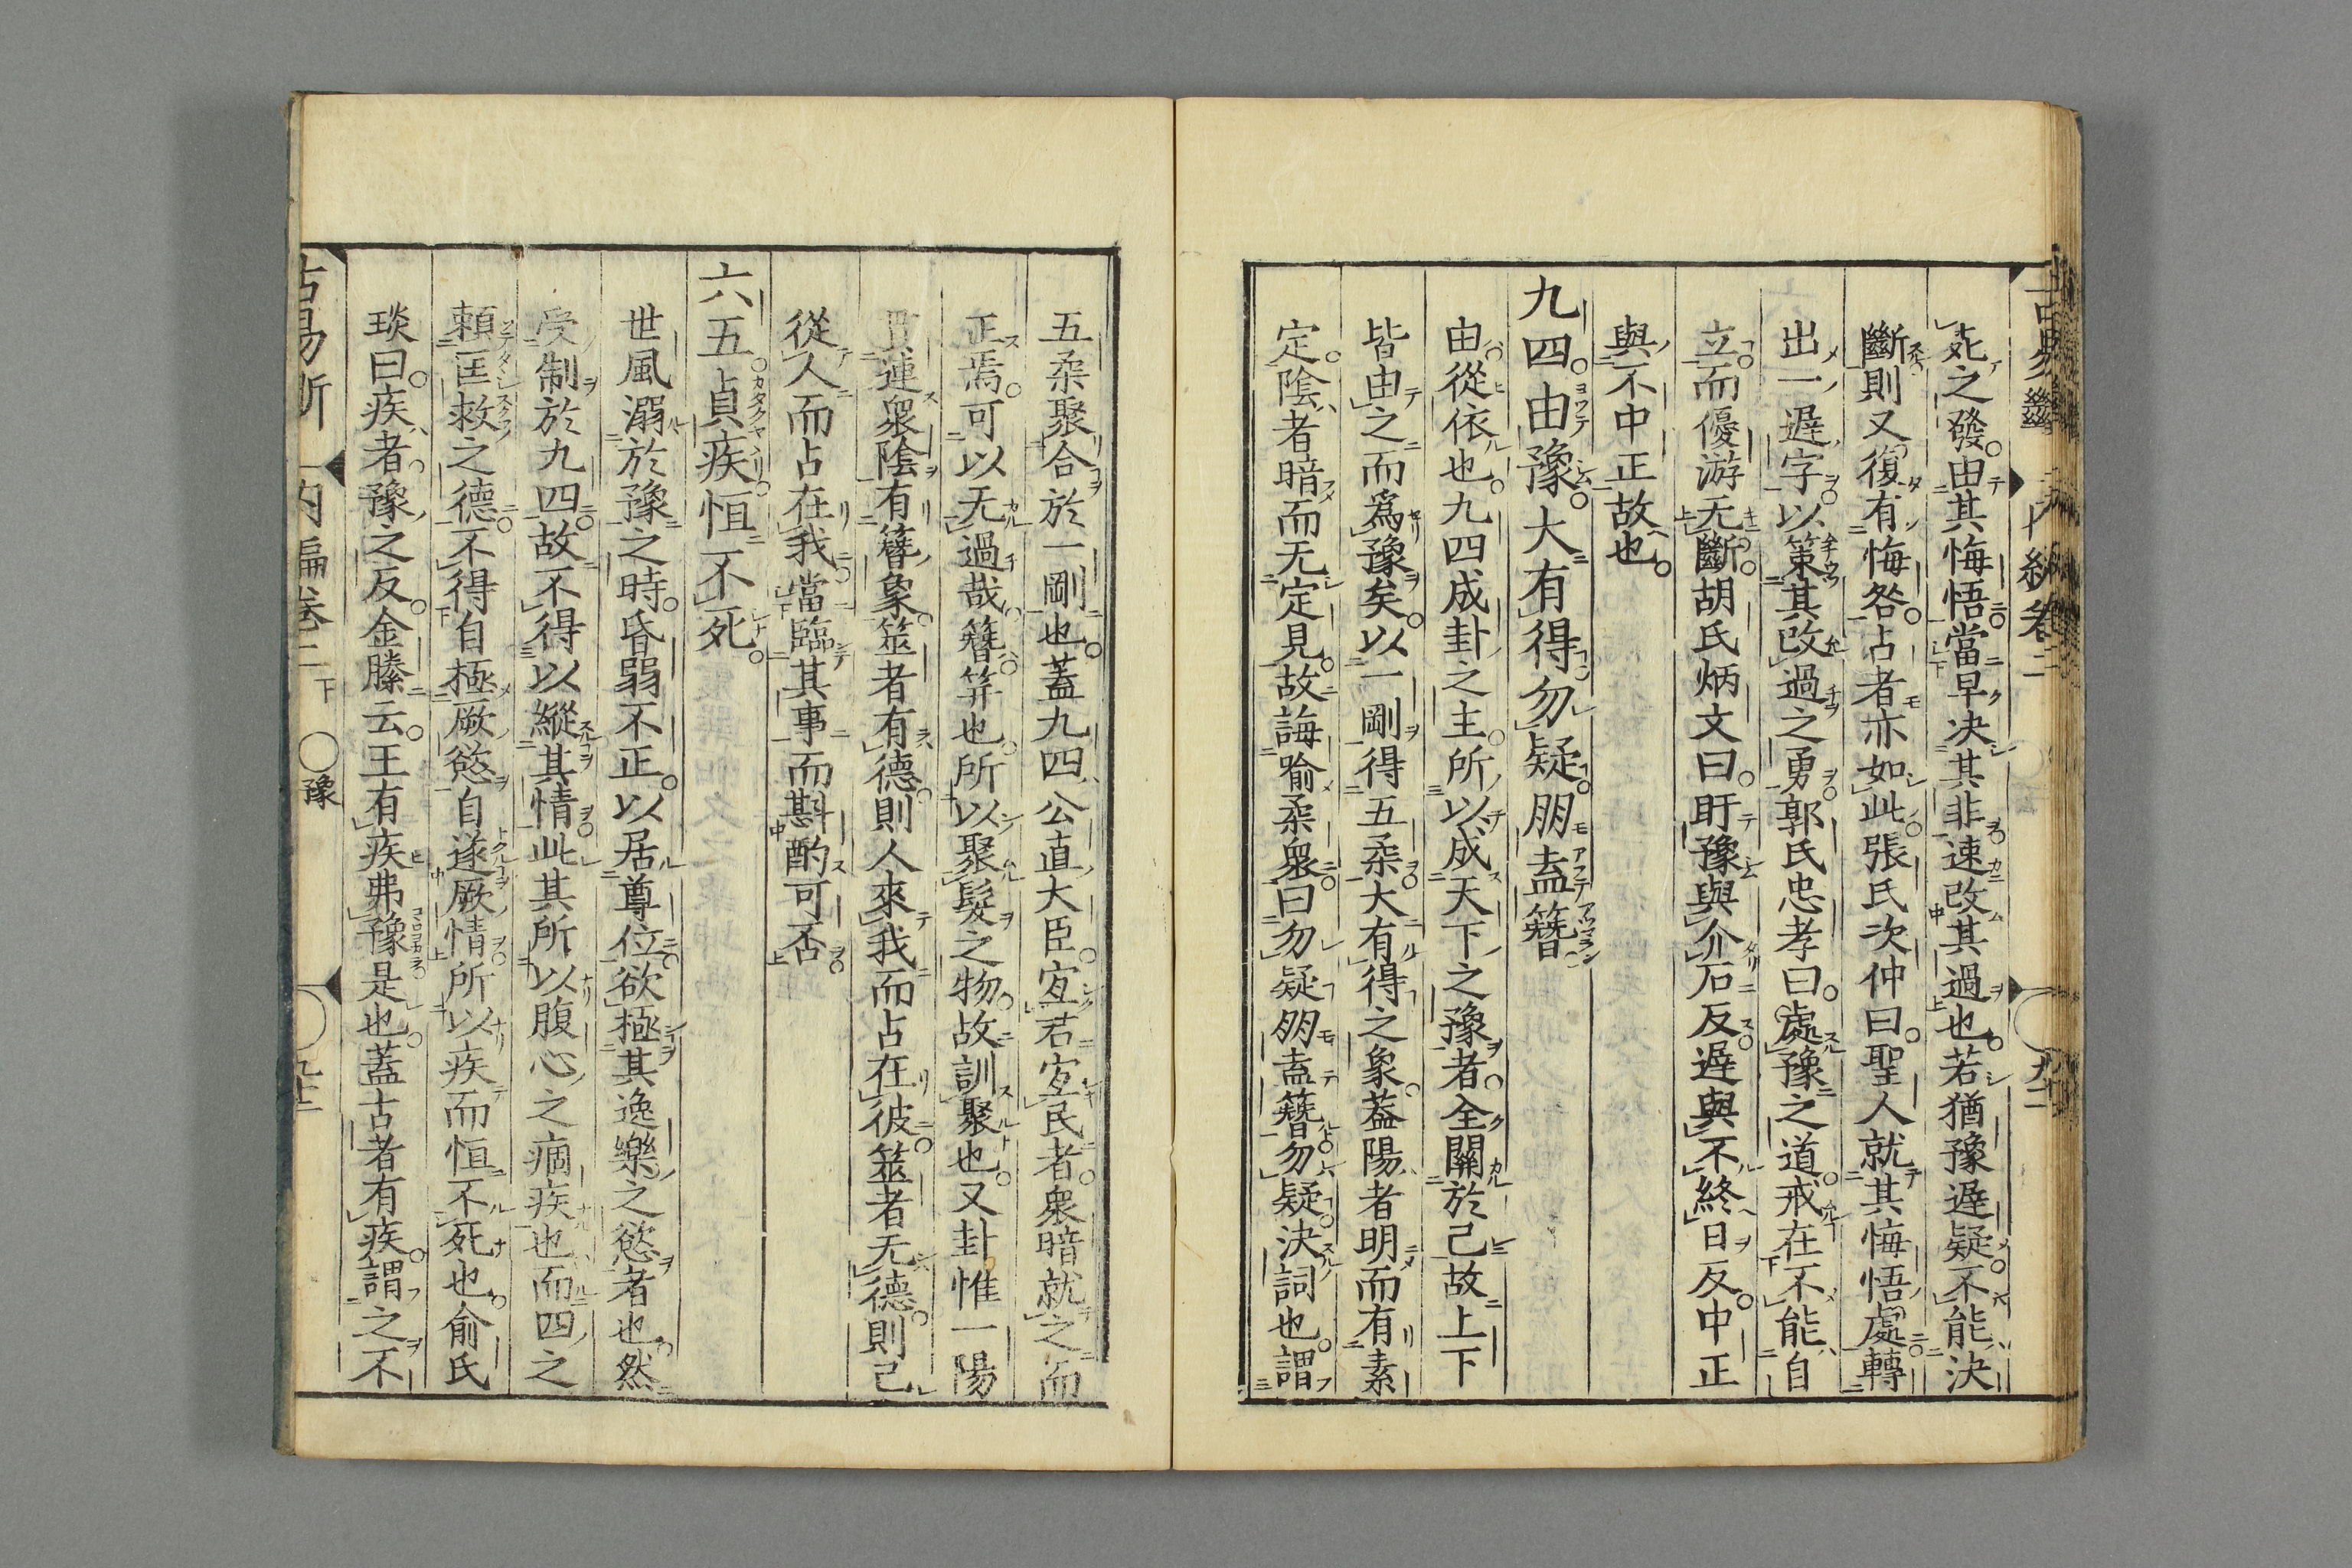 死之發由其悔悟當早決其非速改其過也若猶豫遲疑不能決
斷則又復有悔咎占者亦如此張氏次仲曰聖人就其悔悟處轉
出一遲字以策其改過之勇郭氏忠孝曰處豫之道戒在不能自
立而優游无斷胡氏炳文曰盱豫與介石反遲與不終日反中正
與不中正故也
九四由豫大有得勿疑朋盍簪
由從依也九四成卦之主所以成天下之豫者全關於己故上下
皆由之而爲豫矣以一剛得五柔大有得之象蓋陽者明而有素
定陰者暗而无定見故誨喻柔衆曰勿疑朋盍簪勿疑決詞也謂
五柔聚合於一剛也蓋九四公直大臣宜君宜民者衆暗就之而
正焉可以无過哉簪笄也所以聚髮之物故訓聚也又卦惟一陽
貫連衆陰有簪象筮者有德則人來我而占在彼筮者无德則己
從人而占在我當臨其事而斟酌可否
六五貞疾恒不死
世風溺於豫之時昏弱不正以居尊位欲極其逸樂之慾者也然
受制於九四故不得以縱其情此其所以腹心之痼疾也而四之
頼匡救之德不得自極厥慾自遂厥情所以疾而恒不死也俞氏
琰曰疾者豫之反金縢云王有疾弗豫是也蓋古者有疾謂之不
古易斷 内編卷二下 ○豫